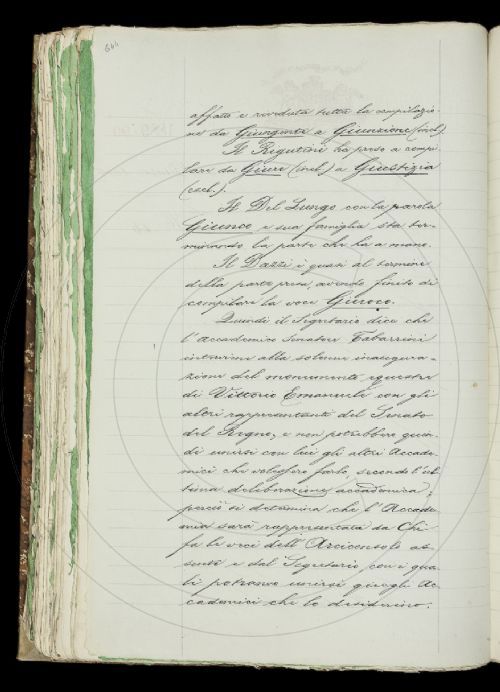 644
affato e riveduta tutta la compilazio-
ne da Giungente a Giunzione (incl.)
Il Rigutini ha preso a compi-
lare da Giure (incl.) a Giustizia
(escl.).
Il Del Lungo con la parola
Giunco e sua famiglia sta ter-
minando la parte che ha a mano.
Il Dazzi è quasi al termine
della parte presa, avendo finito di
compilare la voce Giuoco.
Quindi il Segretario dice che
l'Accademico Senatore Tabarrini
interviene alla solenne inaugura-
zione del monumento equestre
di Vittorio Emanuele con gli
altri rappresentanti del Senato
del Regno, e non potrebbero quin-
di unirsi con lui gli altri Accade-
mici che volessero farlo, secondo l'ul-
tima deliberazione accademica;
perciò si determina che l'Accade-
mia sarà rappresentata da Chi
fa le veci dell'Arciconsolo as-
sente e dal Segretario con i qua-
li potranno unirsi quegli Ac-
cademici che lo desiderino.